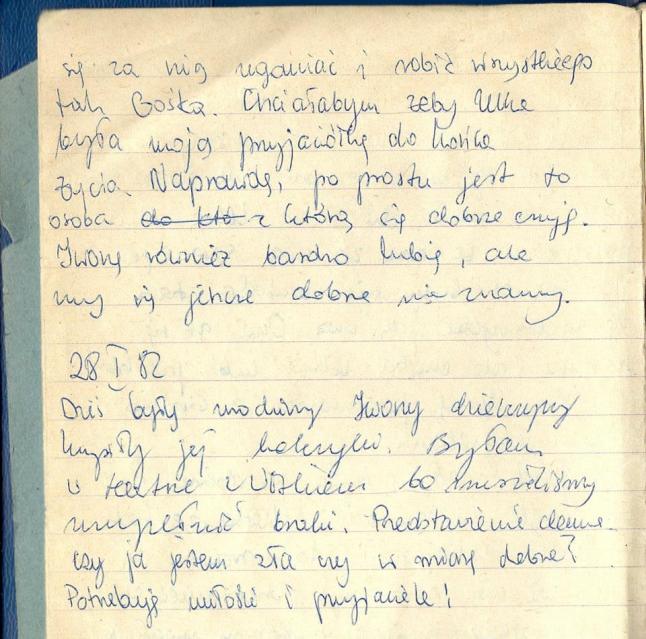 się za nią uganiać i robić wszystkiego
tak Gośka. Chciałabym żeby Ulka
była moją przyjaciółką do końca
życia. Naprawdę, po prostu jest to
osoba do któ z którą się dobrze czuję.
Iwonę również bardzo lubię, ale
my się jeszcze dobrze nie znamy.
28 I 82
Dziś były urodziny Iwony dziewczyny
kupiły jej. Byłam
w teatrze bo musieliśmy
uzupełnić braki. Przedstawienie
czy ja jestem zła czy w miarę dobra?
Potrzebuję miłości i przyjaciele!